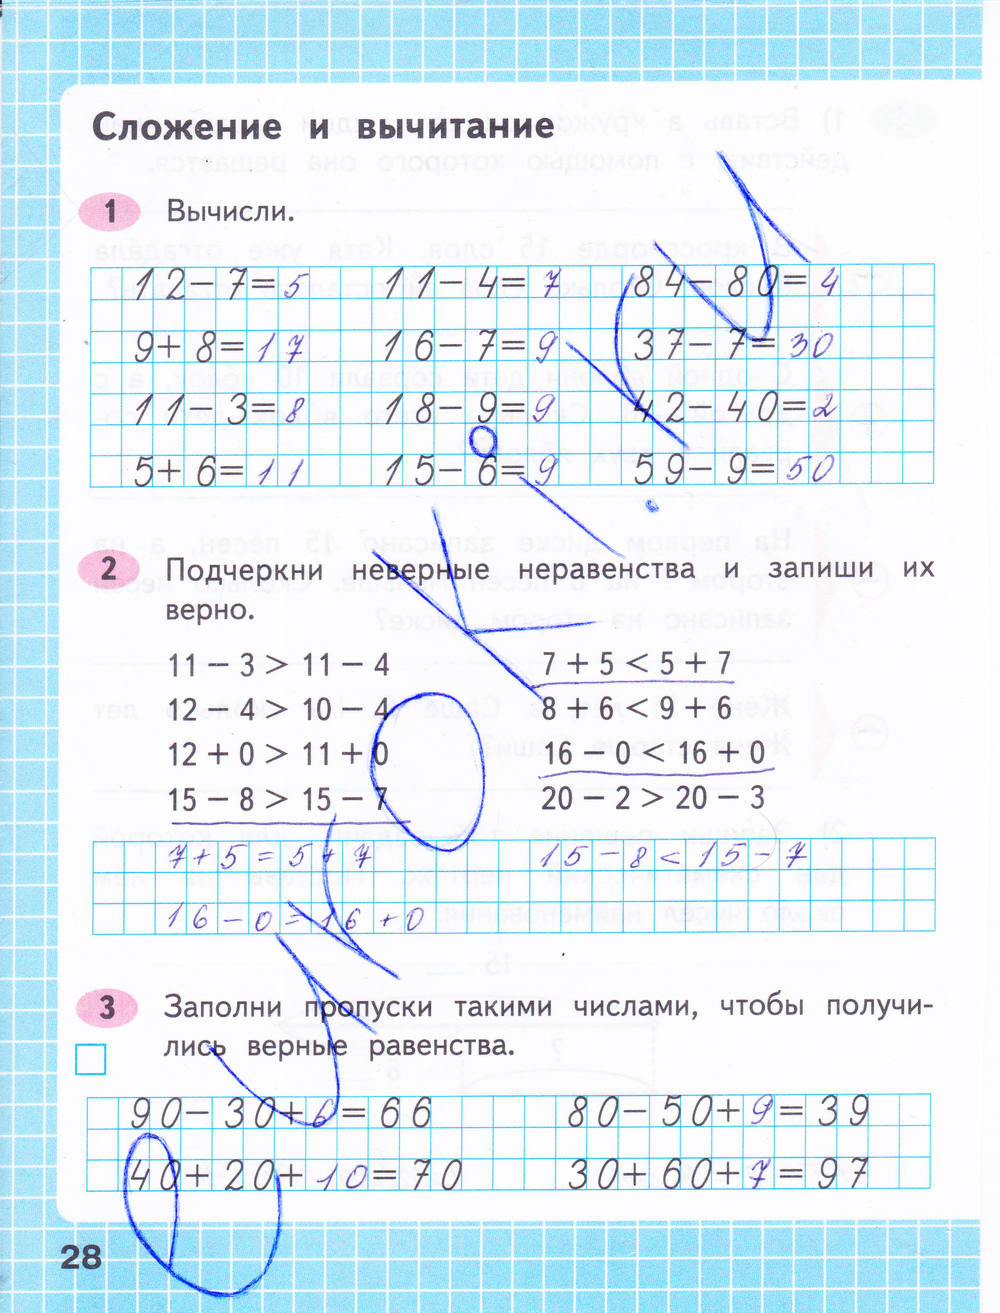 Сложение и вычитание
1 Вычисли.
12-7=5 11-4=7 84-80=4
9+8=17 16-7=9 37-7=30
11-3=8 18-9=9 42-40=2
5+6=11 15-6=9 59-9=50
2 Подчеркни неверные неравенства и запиши их
верно.
11 − 3 > 11 − 4 7 + 5 < 5 + 7
12 − 4 > 10 − 4 8 + 6 < 9 + 6
12 + 0 > 11 + 0 16 − 0 < 16 + 0
15 − 8 > 15 − 7 20 − 2 > 20 − 3
7+5=5+7 15-8<15-7
16-0=16+0
3 Заполни пропуски такими числами, чтобы получи-
лись верные равенства.
90-30+6=66 80-50+9=39
40+20+10=70 30+60+7=97
28